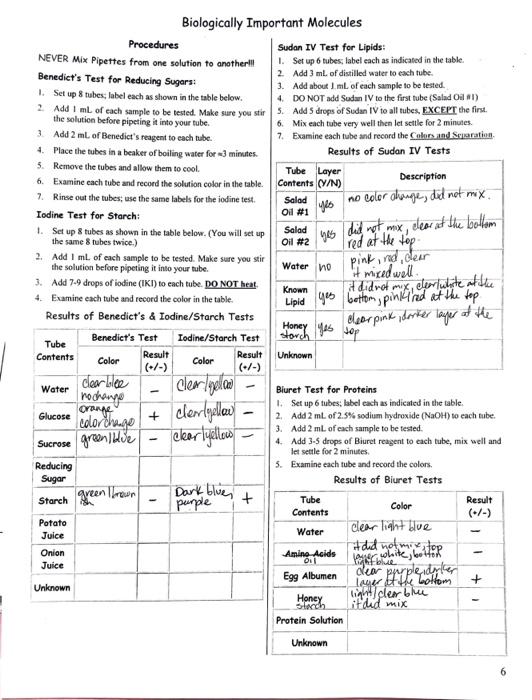 Biologically Important Molecules
Procedures
NEVER Mix Pipettes from one solution to another!!!
Benedict's Test for Reducing Sugars:
1. Set up 8 tubes; label each as shown in the table below.
2. Add 1 mL of each sample to be tested. Make sure you stir
the solution before pipeting it into your tube.
3. Add 2 mL of Benedict's reagent to each tube.
4. Place the tubes in a beaker of boiling water for ≈3 minutes.
5. Remove the tubes and allow them to cool.
6. Examine each tube and record the solution color in the table.
7. Rinse out the tubes; use the same labels for the iodine test.
Iodine Test for Starch:
1. Set up 8 tubes as shown in the table below. (You will set up
the same 8 tubes twice.)
2. Add 1 mL of each sample to be tested. Make sure you stir
the solution before pipeting it into your tube.
3. Add 7-9 drops of iodine (IKI) to each tube. DO NOT heat.
4. Examine each tube and record the color in the table.
Results of Benedict's & Iodine/Starch Tests
Tube Contents Benedict's Test Iodine/Starch Test
Color Result (+/-) Color Result (+/-)
Water clear blue no change - clear/yellow -
Glucose orange color change + clear/yellow -
Sucrose green/blue - clear/yellow -
Reducing Sugar
Starch green ish /brown - Dark blue, purple +
Potato Juice
Onion Juice
Unknown
Sudan IV Test for Lipids:
1. Set up 6 tubes; label each as indicated in the table.
2. Add 3 mL of distilled water to each tube.
3. Add about 1 mL of each sample to be tested.
4. DO NOT add Sudan IV to the first tube (Salad Oil #1)
5. Add 5 drops of Sudan IV to all tubes, EXCEPT the first.
6. Mix each tube very well then let settle for 2 minutes.
7. Examine each tube and record the Colors and Separation.
Results of Sudan IV Tests
Tube Contents Layer (Y/N) Description
Salad Oil #1 yes no color change, did not mix.
Salad Oil #2 yes did not mix, clear at the bottom
red at the top.
Water no pink, red, clear
it mixed well.
Known Lipid yes it did not mix, clear/white at the
bottom, pink/red at the top
Honey starch yes clear pink, darker layer at the
top
Unknown
Biuret Test for Proteins
1. Set up 6 tubes; label each as indicated in the table.
2. Add 2 mL of 2.5% sodium hydroxide (NaOH) to each tube.
3. Add 2 mL of each sample to be tested.
4. Add 3-5 drops of Biuret reagent to each tube, mix well and
let settle for 2 minutes.
5. Examine each tube and record the colors.
Results of Biuret Tests
Tube Contents Color Result (+/-)
Water clear light blue -
Amino Acids Oil it did not mix, top
layer white, bottom
light blue -
Egg Albumen clear purple, darker
layer at the bottom +
Honey starch light/clear blue
it did mix -
Protein Solution
Unknown
6